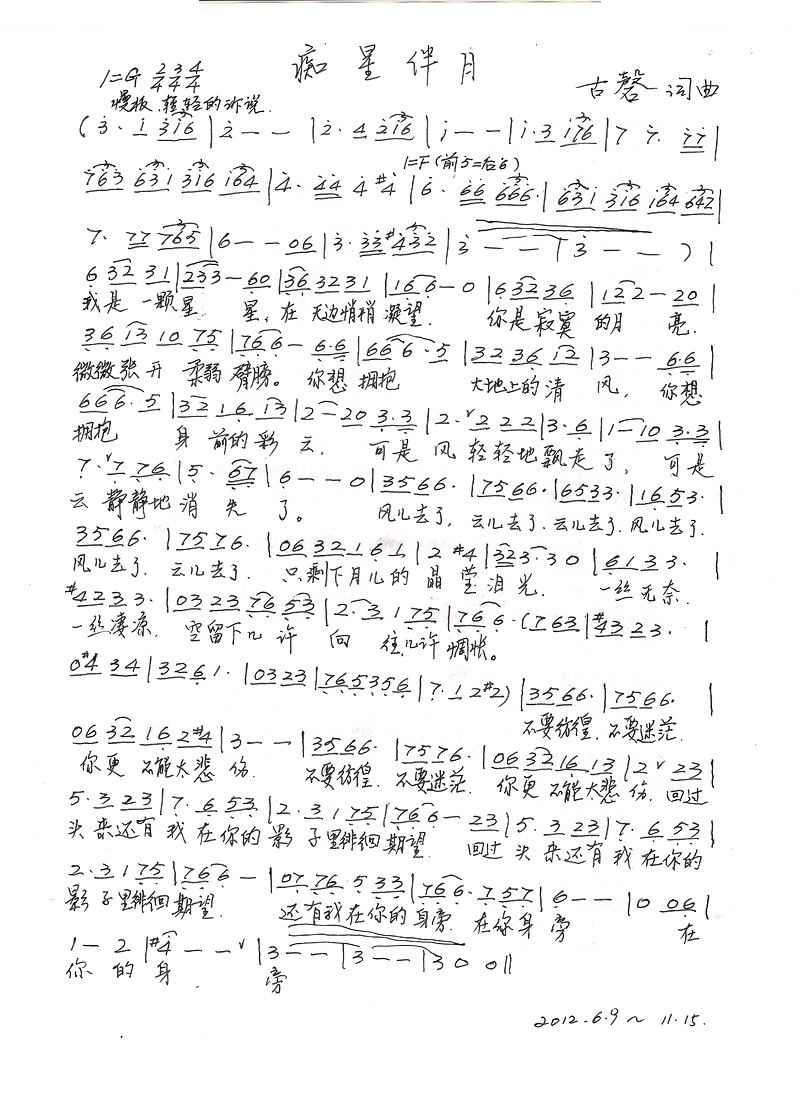 痴星伴月
1=G 2/4 3/4 4/4
古磬 词曲
慢板 轻轻的诉说
(3· 1 316 | 2 - - | 2· 4 216 | 1 - - | 1· 3 176 | 7 7· 77 |
1=F(前5=后6)
763 631 316 164 | 4· 44 4 #4 | 6· 66 666· | 631 316 164 642 |
7· 77 765 | 6 - - 06 | 3· 33 #432 | 3 - - | 3 - - ) |
6 32 31 | 233 - 60 | 36 32 31 | 166 - 0 | 6 32 36 | 122 - 20 |
我是 一颗星 星, 在 天边悄悄 凝望. 你是寂寞 的月 亮.
36 13 10 75 | 766 - 6·6 | 666·5 | 32 36 12 | 3 - - 6·6 |
微微张开 柔弱 臂膀。 你想 拥抱 大地上的清 风, 你想
666·5 | 32 16 13 | 2 - 20 3·3 | 2·ˇ2 2 2 | 3·6 | 1 - 10 3·3 |
拥抱 身 前的彩 云. 可是 风 轻轻地飘走了, 可是
7·ˇ7 76 | 5· 67 | 6 - - 0 | 3566· | 7566· | 6533· | 1653· |
云 静静地 消 失 了。 风儿去了, 云儿去了. 云儿去了. 风儿去了.
3566· | 7576· | 06 32 16 1 | 2 #4 | 323·30 | 6133· |
风儿去了. 云儿去了. 只剩下月儿的 晶 莹泪光. 一丝无奈.
#4233· | 03 23 76 53 | 2·3 1 75 | 766·(763 | #4323· |
一丝凄凉. 空留下几 许 向 往几许 惆怅。
0#4 34 | 3261· | 03 23 | 765356 | 7·1 2#2) | 3566· | 7566· |
不要彷徨. 不要迷茫.
06 32 16 2#4 | 3 - - | 3566· | 7576· | 06 32 16 13 | 2ˇ23 |
你更 不能太悲 伤. 不要彷徨. 不要迷茫. 你更 不能太悲 伤. 回过
5·3 23 | 7·6 53 | 2·3 1 75 | 766 - 23 | 5·3 23 | 7·6 53 |
头 来还有 我 在你的 影 子里徘徊 期望. 回过 头 来还有 我 在你的
2·3 1 75 | 766 - | 07 76·5 33 | 766·7 57 | 6 - - | 0 06 |
影 子里徘徊 期望. 还有我在你的 身旁. 在你身 旁 在
1 - 2 | #4 - -ˇ | 3 - - | 3 - - | 3 0 0 ||
你 的 身 旁
2012.6.9～11.15.